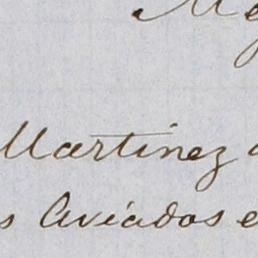 Martinez
s Aviados e